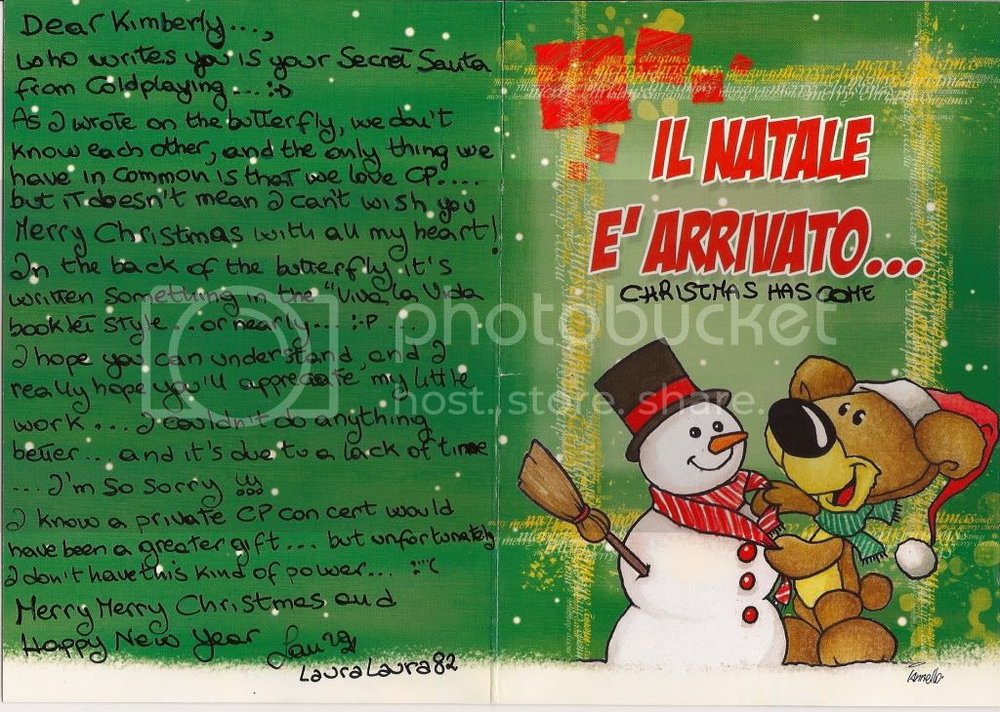 Dear Kimberly...,
who writes you is your Secret Santa
from Coldplaying... :D
As I wrote on the butterfly, we don't
know each other, and the only thing we
have in common is that we love CP....
but it doesn't mean I can't wish you
Merry Christmas with all my heart!
In the back of the butterfly it's
written something in the "Viva la Vida
booklet style... or nearly... :-P ....
I hope you can understand, and I
really hope you'll appreciate my little
work.... I couldn't do anything
better... and it's due to a lack of time
... I'm so sorry !!!
I know a private CP concert would
have been a greater gift... but unfortunately
I don't have this kind of power... :"(
Merry Merry Christmas and
Happy New Year
LauraLaura82
merry christmas
IL NATALE
E' ARRIVATO...
CHRISTMAS HAS COME
Iannello
photobucket
host. store. share.